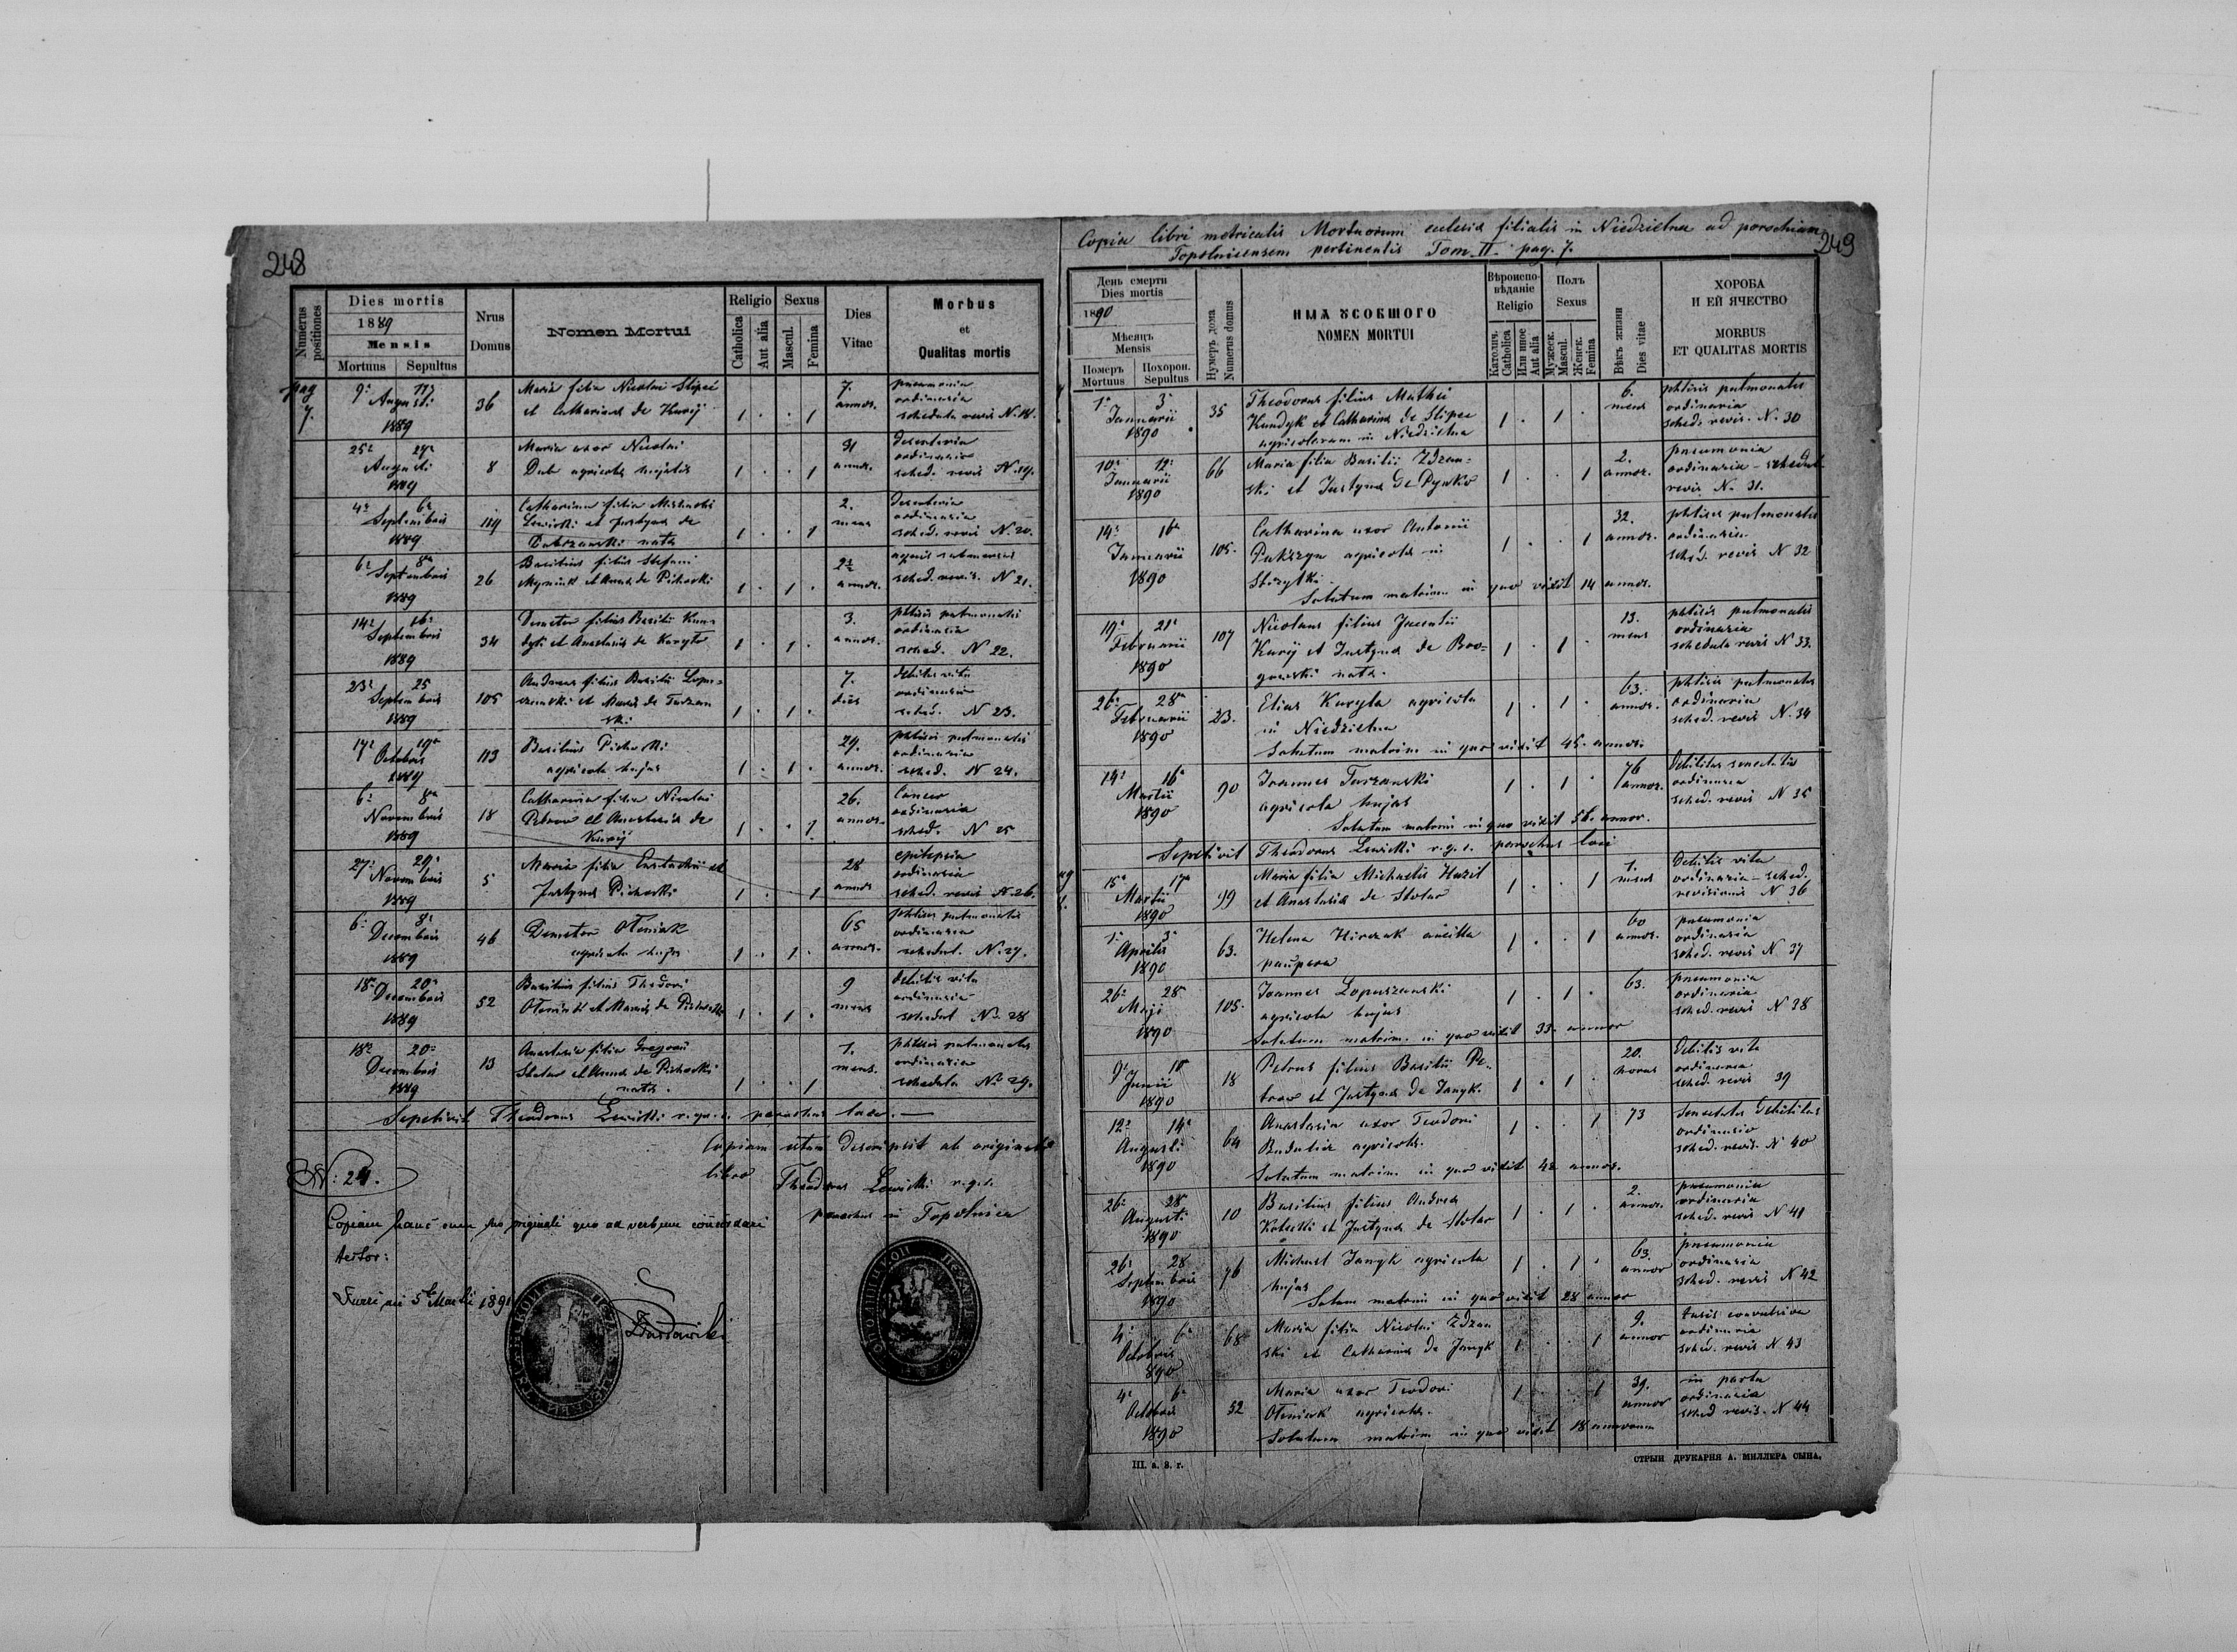 248
Numerus positiones
Dies mortis
1889
Mensis
Mortuus Sepultus
Nrus Domus
Nomen Mortui
Religio
Catholica
Aut alia
Sexus
Mascul.
Femina
Dies Vitae
Morbus
et
Qualitas mortis
pag 7.
9a 11a Augusti 1889
36
Maria filia Nicolai Slipei
et Catharina de Kuryj
1 . . 1
7. annor.
pneumonia
ordinaria
schedula revis N. 18.
25a 27a Augusti 1889
8
Maria uxor Nicolai
Dub agricola hujatis
1 . . 1
31 annor.
desenteria
ordinaria
sched. revis N. 19.
4a 6a Septembris 1889
Catharina filia
Lewicki et Justyna de
nata
1 . . 1
2. mens
desenteria
ordinaria
sched. revis N. 20.
6a 8a Septembris 1889
26
Basilius filius Stefani
et Anna de Pichocki
1 . 1 .
2½ annor.
aquis submersus
sched. revis. N 21.
14a 16a Septembris 1889
34
Demeter filius Basilii Kun-
dyk et Anastasia de Kuryło
1 . 1 .
3. annor.
phtisis pulmonalis
ordinaria
sched. N 22.
23a 25 Septembris 1889
105
Andreas filius Basilii Lopu-
szanski et Maria de Turzan
ski
1 . 1 .
7. dies
debilis vita
ordinaria
sched. N 23.
17a 19a Octobris 1889
113
Basilius Pichocki
agricola hujas
1 . 1 .
29. annor.
phtisis pulmonalis
ordinaria
sched. N 24.
6a 8a Novembris 1889
18
Catharina filia Nicolai
Petrow et Anastasia de
Kuryj
1 . . 1
26. annor.
Cancer
ordinaria
sched. N 25
27a 29a Novembris 1889
5
Maria filia Eustachii et
Justyna Pichocki
1 . 1
28 annor
epilepsia
ordinaria
sched. revis N. 26.
6a 8a Decembris 1889
46
Demeter Oleniak
agricola hujas
1 . 1 .
65 annor.
phtisis pulmonalis
ordinaria
schedul. N. 27.
18a 20a Decembris 1889
52
Basilius filius Theodori
Oleniak et Maria de Pichocki
1 . 1 .
9 mens
debilis vita
ordinaria
schedul No 28
18a 20a Decembris 1889
13
Anastasia filia Gregorii
Stolar et Anna de Pichocki
nata.
1 . . 1
1. mens.
phtisis pulmonalis
ordinaria
schedula No 29.
Sepelivit Theodorus Lewicki r. gr. c. parochus loci. —
Copiam istam descripsit ab originali
libro Theodorus Lewicki r. g. c.
parochus in Topolnica
N: 24.
Copiam hanc cum suo originali quo ad verbum concordari
testor:
5ta Martii 1891
249
Copia libri metricalis Mortuorum eclesia filialis in Niedzielna ad parochiam
Topolnicensem pertinentis Tom. II. pag. 7.
День смерти
Dies mortis
1890
Мѣсяцъ
Mensis
Померъ Mortuus
Похорон. Sepultus
Нумеръ дома
Numerus domus
ИМѦ ꙊСОБШОГО
NOMEN MORTUI
Вѣроисповѣданіе
Religio
Католич. Catholica
Или иное Aut alia
Полъ
Sexus
Мужеск. Mascul.
Женск. Femina
Вѣкъ жизни
Dies vitae
ХОРОБА
И ЕЙ ЯЧЕСТВО
MORBUS
ET QUALITAS MORTIS
1a 3a Januarii 1890
35
Theodorus filius Mathei
Kundyk et Catharina de Slipee
agricolarum in Niedzielna
1 . 1 .
6. mens
phtisis pulmonalis
ordinaria
sched. revis. N. 30
10a 12a Januarii 1890
66
Maria filia Basilii Zdzan-
ski et Justyna de Pynko
1 . . 1
2. annor.
pneumonia
ordinaria - schedul
revis No 31.
14a 16a Januarii 1890
105.
Catharina uxor Antonii
agricola in
Strzylki.
Solutum matrim in quo vixit 14 annor.
1 . . 1
32. annor.
phtisis pulmonalis
ordinaria
sched. revis N 32
19a 21a Februarii 1890
107
Nicolaus filius
Kuryj et Justyna de Bro-
nata.
1 . 1 .
13. mens
phtisis pulmonalis
ordinaria
schedula revis N 33.
26a 28a Februarii 1890
23.
Elias Kuryla agricola
in Niedzielna
Solutum matrim in quo vixit 45. annor.
1 . 1 .
63. annor.
phtisis pulmonalis
ordinaria
sched. revis N. 34
14a 16a Martii 1890
90
Joannes Turzanski
agricola hujas
Solutum matrim in quo vixit 56. annor.
1 . 1 .
76 annor.
debilitas senectutis
ordinaria
sched. revis N 35
Sepelivit Theodorus Lewicki r. g. c. parochus loci
15a 17a Martii 1890
99
Maria filia Michaelis Huzil
et Anastasia de Stolar
1 . . 1
1. mens
debilis vita
ordinaria - sched.
revisionis N 36
1a 3a Aprilis 1890
63.
Helena Hirczak ancilla
paupera
1 . . 1
60 annor.
pneumonia
ordinaria
sched. revis N. 37
26a 28a Maji 1890
105.
Joannes Lopuszanski
agricola hujas
Solutum matrim. in quo vixit 33. annor
1 . 1 .
63.
pneumonia
ordinaria
sched. revis N 38
9a Junii 1890
18
Petrus filius Basilii Pe-
trow et Justyna de Janyk.
1 . 1 .
20. horas
debilis vita
ordinaria
sched. revis 39
12a 14a Augusti 1890
64
Anastasia uxor Teodori
agricola.
Solutum matrim. in quo vixit 42 annor.
1 . . 1
73
senectutis debilitas
ordinario
sched. revis. N 40
26a 28a Augusti 1890
10
Basilius filius Andrea
et Justyna de Stolar
1 . 1 .
2. annor.
pneumonia
ordinaria
sched. revis N 41
26a 28 Septembris 1890
76
Michael Janyk agricola
hujas
Solum matrim in quo vixit 28 annor
1 . 1 .
63. annor
pneumonia
ordinaria
sched. revis N 42
4a 6a Octobris 890
68
Maria filia Nicolai Zdzan
ski et Catharina de Janyk
1 . . 1
9. annor
tusis convulsiva
ordinaria
sched. revis N 43
4a 6a Octobris 1890
52
Maria uxor Teodori
Oleniak agricola.
Solutum matrim in quo vixit 18 annorum
1 . . 1
39. annor
in partu
ordinaria
sched revis. N 44
III. a. 8. г.
СТРЫЙ ДРУКАРНЯ А. МИЛЛЕРА СЫНА.